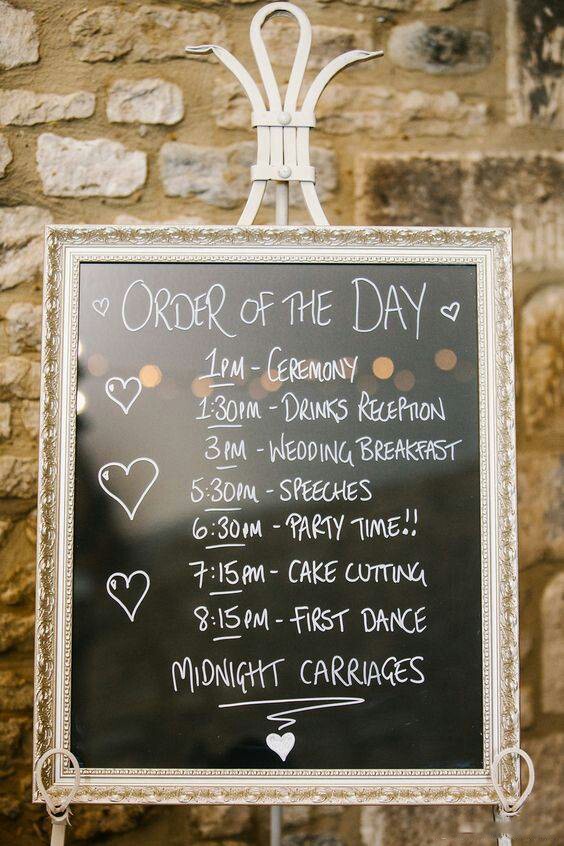 ORDER OF THE DAY
1PM - CEREMONY
1:30PM - DRINKS RECEPTION
3PM - WEDDING BREAKFAST
5:30PM - SPEECHES
6:30PM - PARTY TIME!!
7:15PM - CAKE CUTTING
8:15PM - FIRST DANCE
MIDNIGHT CARRIAGES